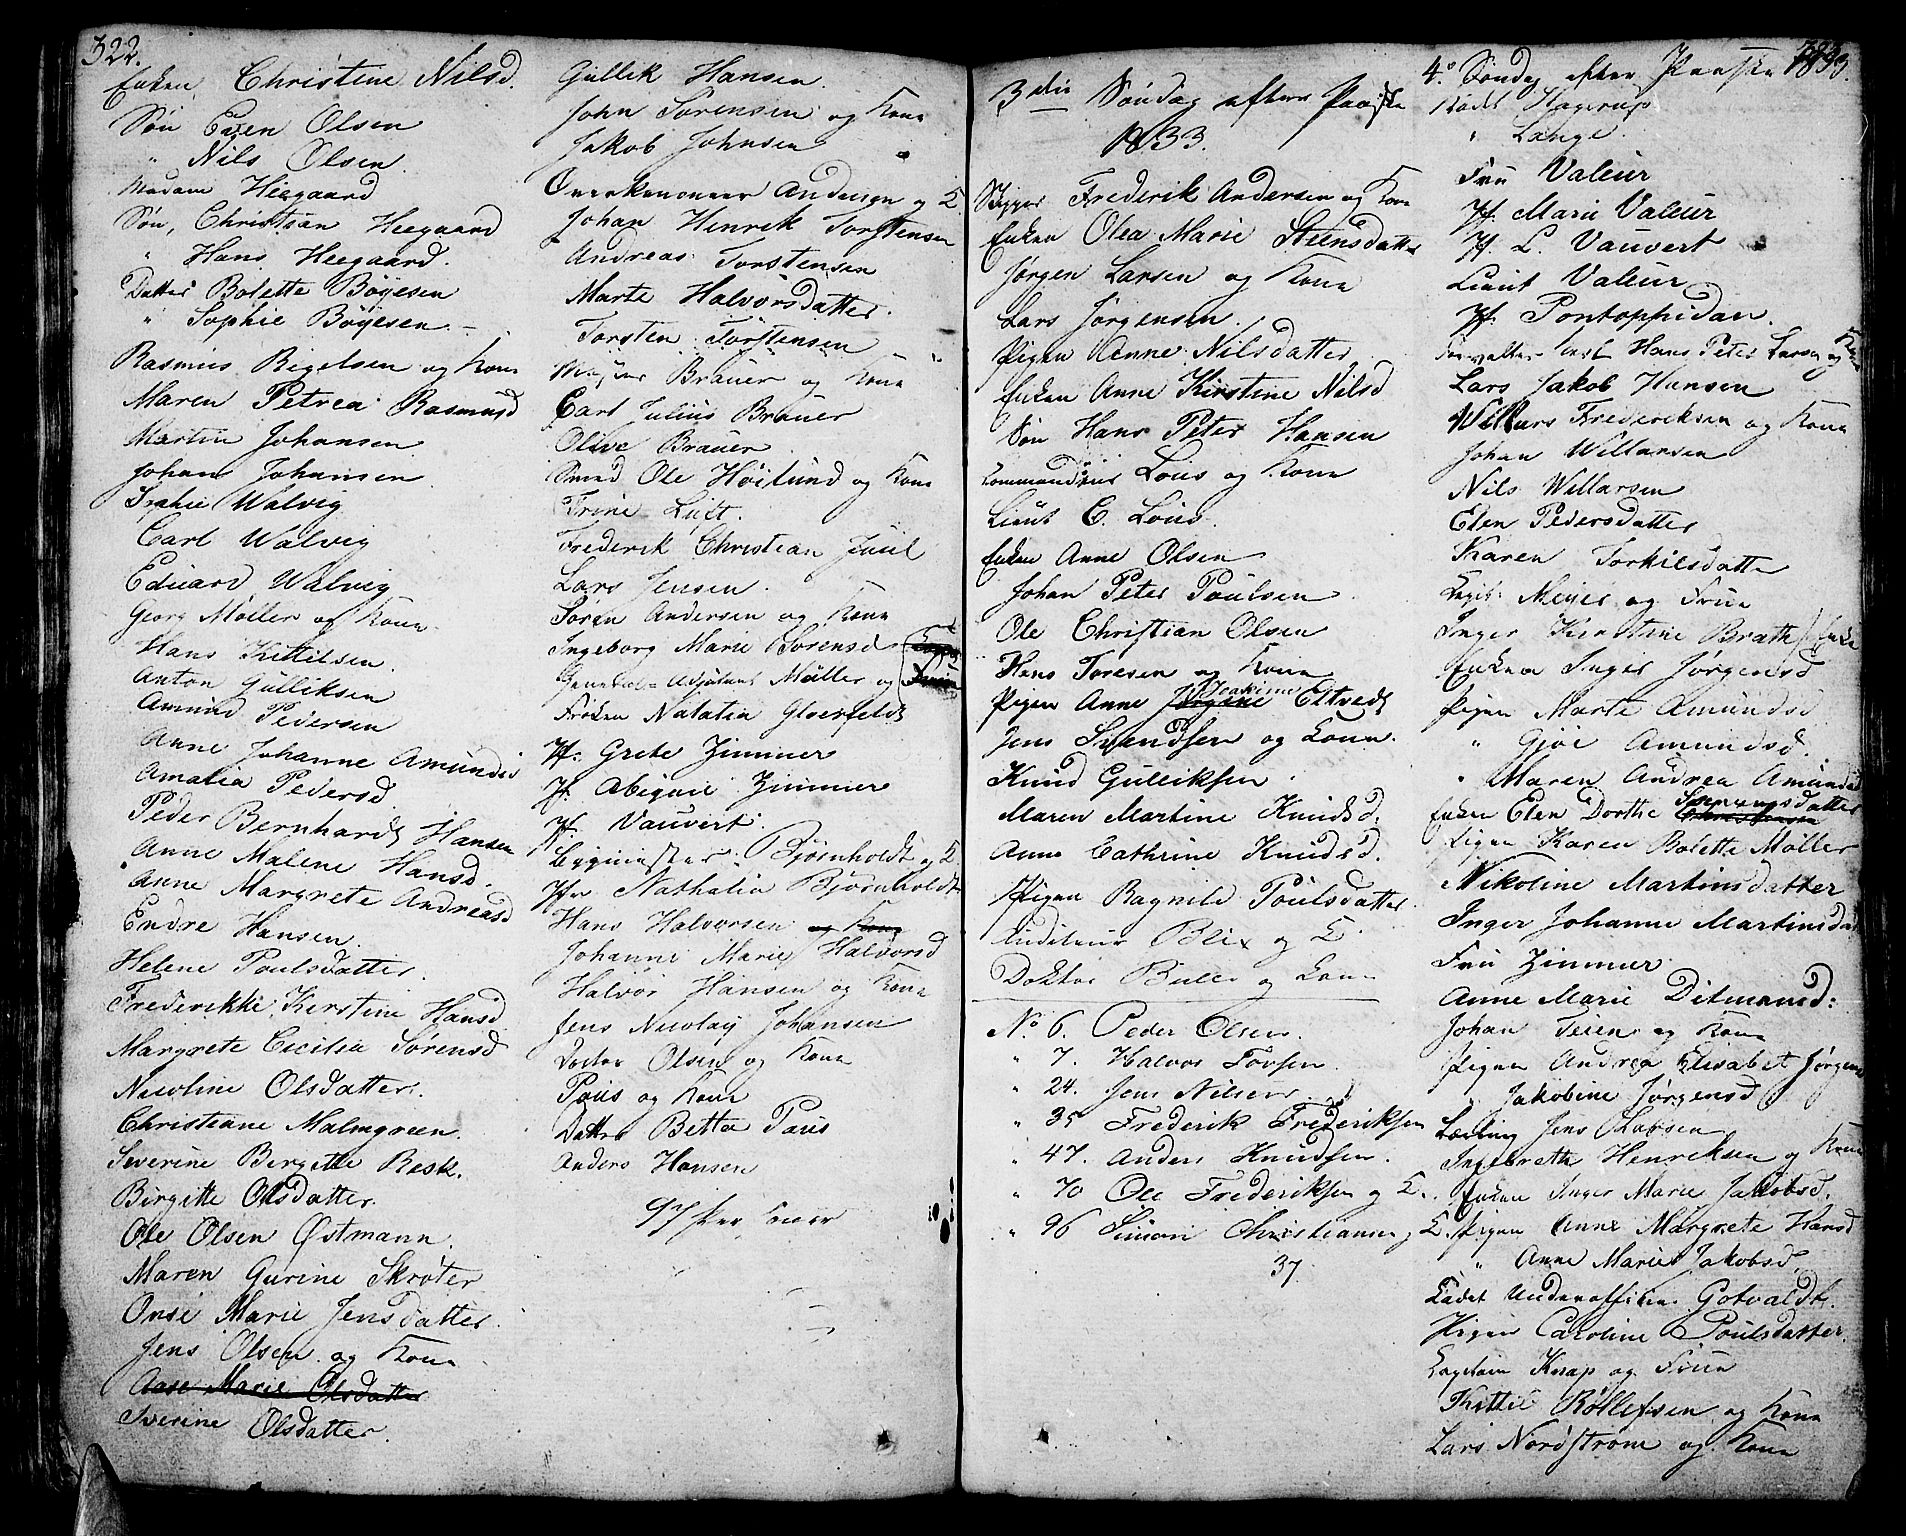 322.
Enken Christine Nilsd.
Søn Even Olsen
" Nils Olsen
Madam Heegaard
Søn, Christian Heegaard
" Hans Heegaard.
Datter Bolette Böyesen
" Sophie Böyesen -
Rasmus Bigelsen og Kone
Maren Petrea Rasmusd
Martin Johansen
Johan Johansen
Walvig
Carl Walvig
Eduard Walvig
Georg Møller og Kone
Hans Kittilsen.
Anton Gulliksen
Amund Pedersen
Anne Johanne Amundsd
Amalia Pedersd.
Peder Bernhardt Hansen
Anne Malene Hansd.
Anne Margrete Andreasd
Endre Hansen.
Helene Poulsdatter.
Frederikke Kirstine Hansd
Margrete Cecilia Sørensd
Nicoline Olsdatter.
Christiane Malmgreen.
Severine Bergitte Resk.
Birgitte Olsdatter.
Ole Olsen Østmann.
Maren Gurine Skrøter
Onse Marie Jensdatter
Jens Olsen og Kone
Aase Marie Olsdatter
Severine Olsdatter.
Gullik Hansen.
John Sørensen og Kone
Jakob Johnsen "
Overkanoneer Andersen og K.
Johan Henrik Torstensen
Andreas Torstensen
Marte Halvorsdatter.
Torsten Torstensen
Brauer og Kone "
Carl Julius Brauer
Olive Brauer
Smed Ole Höilund og Kone
Trine Luft.
Frederik Christian Juul
Lars Jensen.
Søren Andersen og Kone
Ingeborg Marie Sørensd
General-Adjutant Møller og Fruen
Frøken Natalia Gloerfeldt
Jf. Grete Zimmer
Jf. Abigael Zimmer
Jf. Vauvert.
Bygmester Bjørnholdt og K
Jfr Nathalia Bjørnholdt
Hans Halvorsen og Kone
Johanne Marie Halvorsd
Halvor Hansen og Kone
Jens Nicolay Johansen
Olsen og Kone
Paus og Kone
Datter Betta Paus
Anders Hansen
97
3die Søndag efter Paaske
1833.
Skipper Frederik Andersen og Kone
Enken Olea Marie Steensdatter
Jørgen Larsen og Kone
Lars Jørgensen.
Pigen Anne Nilsdatter
Enken Anne Kirstine Nilsd
Søn Hans Peter Hansen
Commandeur Lous og Kone
Lieut C. Lous.
Enken Anne Olsen
Johan Peter Poulsen
Ole Christian Olsen
Hans Toresen og Kone
Joakime
Pigen Anne Jørgine Eltvedt
Jens Svendsen og Kone.
Knud Gulliksen.
Maren Martine Knudsd.
Anne Cathrine Knudsd.
Pigen Ragnild Poulsdatter
Auditeur Blix og K.
Doktor Bull og Kone
No 6. Peder Olsen.
" 7. Halvor Torsen.
" 24. Jens Nilsen
" 35 Frederik Frederiksen
" 47. Anders Knudsen.
" 70 Ole Frederiksen og K.
" 96 Simon Christiansen og K.
37
323
4.° Søndag efter Paaske 1833.
Kadet Hagerup
" Lange.
Fru Valeur
Jf. Marie Valeur
Jf. L. Vauvert
Lieut Valeur
Jf. Pontoppidan.
Forvalter Hans Peter Larsen og Kone
Lars Jakob Hansen
Willars Frederiksen og Kone
Johan Willarsen
Nils Willarsen
Elen Pedersdatter
Karen Torkilsdatter
Capit. Meyer og Frue
Inger Kirstine Brath Enke
Enken Inger Jørgensd
Pigen Marte Amundsd
" Gjøe Amundsd.
" Maren Andrea Amundsd
Sørensdatter
Enken Elen Dorthe Christensen
Pigen Karen Bolette Møller
Nikoline Martinsdatter
Inger Johanne Martinsdat
Fru Zimmer
Anne Marie Ditmansd:
Johan Teien og Kone
Pigen Andrea Elisabet Jørgens
" Jakobine Jørgensd
Lærling Jens Larsen
Ingebreth Henriksen og Kone
Enken Inger Marie Jakobsd.
Pigen Anne Margrete Hansd
" Anne Marie Jakobsd.
Cadet Underofficier Gotvaldt.
Pigen Caroline Poulsdatter.
Captain Knap og Frue
Kittil Rollefsen og Kone
Lars Nordstrøm og Kone